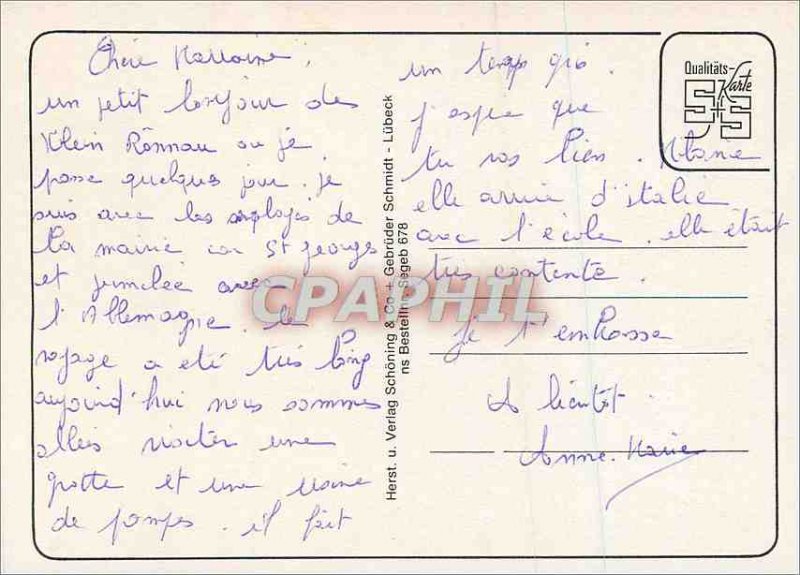 Chère Marraine,
un petit bonjour de
Klein Rönnau ou je
passe quelques jour. je
suis avec les employés de
la mairie car St georges
et jumelée avec
l'Allemagne. le
voyage a eté très long
aujourd'hui nous sommes
allés visiter une
grotte et une usine
de pompes. il fait
un temps gris.
j'espere que
tu vas bien.
elle arrive d'italie
avec l'école. elle était
très contente.
je t'embrasse
A bientôt.
Anne-Marie
Qualitäts-
Karte
S+S
Herst. u. Verlag Schöning & Co. + Gebrüder Schmidt - Lübeck
ns Bestellnr. Segeb 678
CPAPHIL